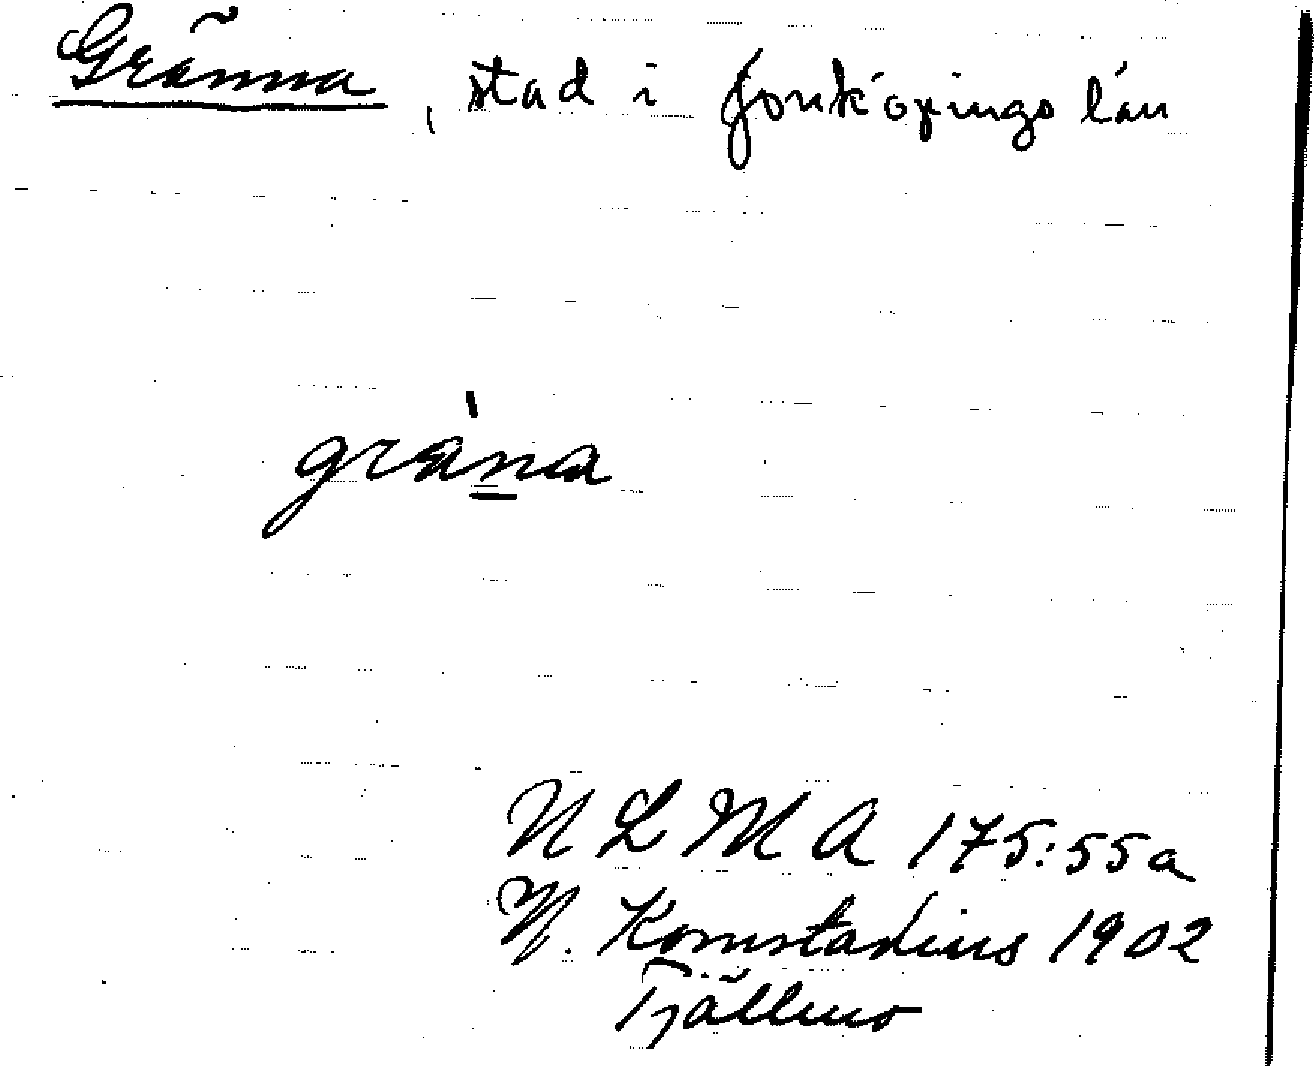 Gränna, stad i Jönköpings län
gräna
NLMA 175:55a
N. Komstadius 1902
Tjällmo